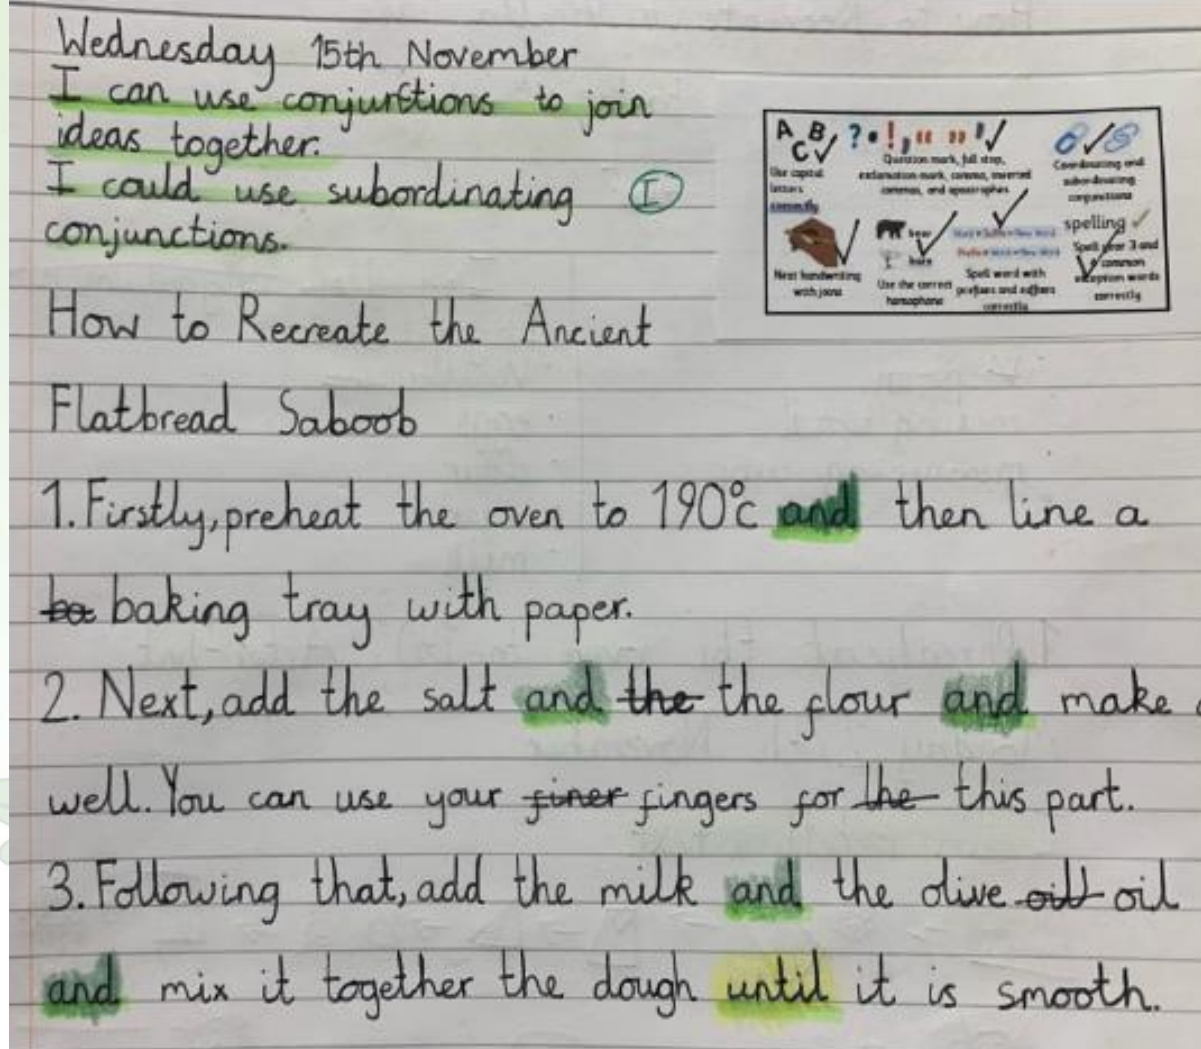 Wednesday 15th November
I can use conjunctions to join
ideas together.
I could use subordinating I
conjunctions.
A B C ? . ! , " " '
Use capital letters correctly
Question mark, full stop, exclamation mark, comma, inverted commas, and apostrophes
Coordinating and subordinating conjunctions
Neat handwriting with joins
bear
bare
Use the correct homophone
Word + Suffix = New Word
Prefix + Word = New Word
Spell word with prefixes and suffixes correctly
spelling
Spell year 3 and common exception words correctly
How to Recreate the Ancient
Flatbread Saboob
1. Firstly, preheat the oven to 190°c and then line a
ba baking tray with paper.
2. Next, add the salt and the the flour and make
well. You can use your finer fingers for the this part.
3. Following that, add the milk and the olive oil oil
and mix it together the dough until it is smooth.